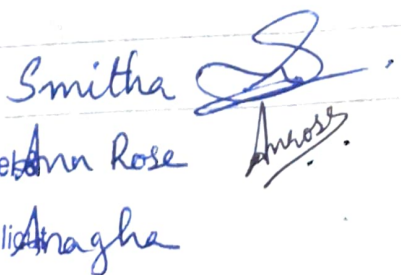 Smitha
Ann Rose Anross
Anagha